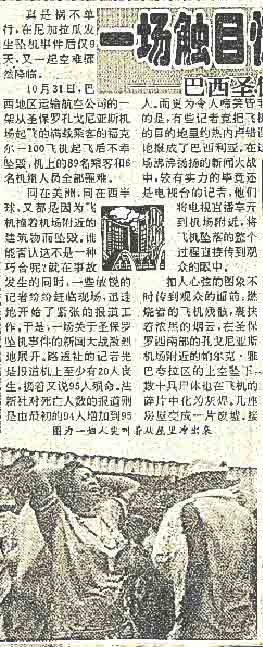 一场触目惊
巴西圣保
真是祸不单
行，在尼加拉瓜发
生坠机事件后仅9
天，又一起空难骤
然降临。
10月31日，巴
西地区运输航空公司的一
架从圣保罗孔戈尼亚斯机
场起飞的满载乘客的福克
尔—100飞机起飞后不幸
坠毁，机上的89名乘客和6
名机组人员全部罹难。
同在美洲，同在西半
球，又都是因为飞
机撞着机场附近的
建筑物而坠毁，谁
能否认这不是一种
巧合呢?就在事故
发生的同时，一些敏锐的
记者纷纷赶临现场，迅速
地开始了紧张的报道工
作。于是，一场关于圣保罗
坠机事件的新闻大战激烈
地展开。路透社的记者先
是报道机上至少有20人丧
生，接着又说95人殒命。法
新社对死亡人数的报道则
是由最初的94人增加到95
人。而更为令人啼笑皆非
的是，有些记者竟把飞机
的目的地里约热内卢错误
地报成了巴西利亚。在这
场沸沸扬扬的新闻大战
中，较有实力的毕竟还
是电视台的记者，他们
将电视直播车开
到机场附近，将
飞机坠落的整个
过程直接传到观
众的眼中。
扣人心弦的图象不
时传到观众的面前。燃
烧着的飞机残骸，裹挟
着浓黑的烟云，在圣保
罗西南部的孔戈尼亚斯
机场附近的帕尔克·雅
巴夸拉区的上空坠下，
数十具尸体也在飞机的
碎片中化为灰烬。几座
房屋变成一片废墟。接
图为一妇人哭叫着从屋里冲出来